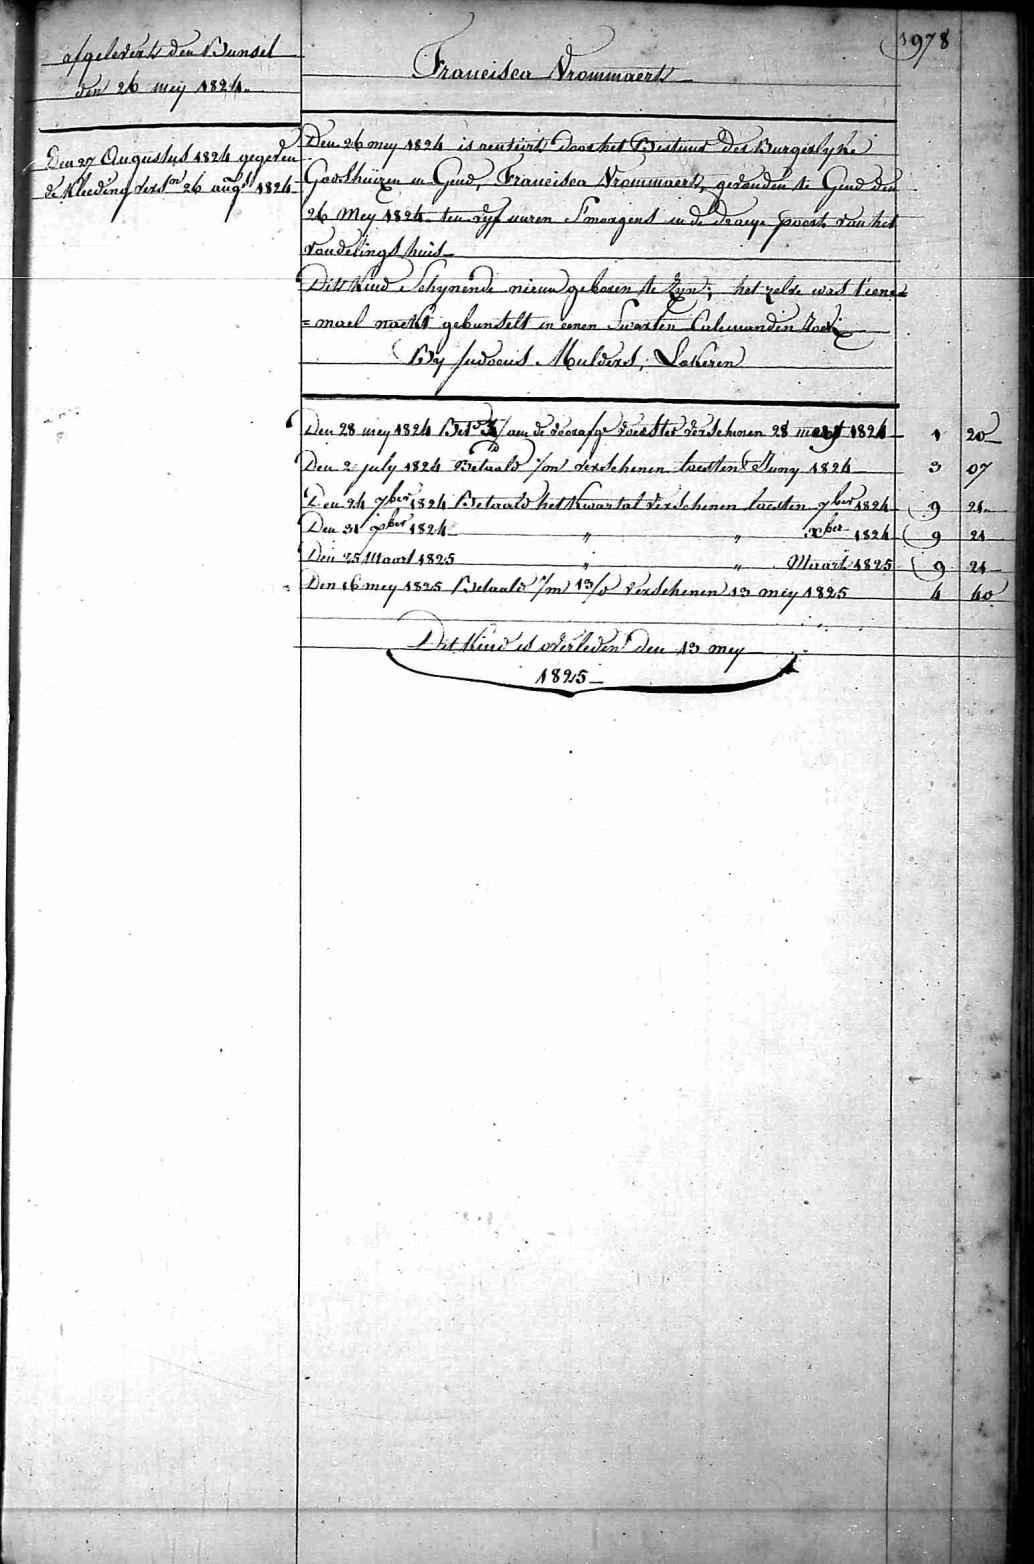 978
afgelevert den Bunsel
den 26 meij 1824.
Francisca Vrommaert
Den 27 Augustus 1824 gegeven
de Kleeding versn 26 augt 1824
Den 26 mey 1824 is door het Bestuur der Burgerlyke
Godshuizen in Gend, Francisca Vrommaert, gevonden te Gend den
26 Mey 1824 ten vyf uuren Smorgens in de draeye poort van het
vondelingshuis
Dit Kind Schynende nieuw geboren te Zyn; het zelve was t'eene=
=mael naekt gebunselt in eenen Swarten Calemanden Rock
By Judocus Mulders, Lokeren
Den 28 mey 1824 aan de voorafge voester verschenen 28 mey 1824 1 20
Den 2 july 1824 Betaald 1/m verschenen laesten Juny 1824 3 07
Den 24 7ber 1824 Betaald het Kwartal verschenen laesten 7ber 1824 9 21
Den 31 xber 1824 " " xber 1824 9 21
Den 25 Maart 1825 " " Maart 1825 9 21
Den 16 mey 1825 Betaald 1/m 13/d verschenen 13 mey 1825 4 40
Dit Kind is overleden den 13 mey
1825